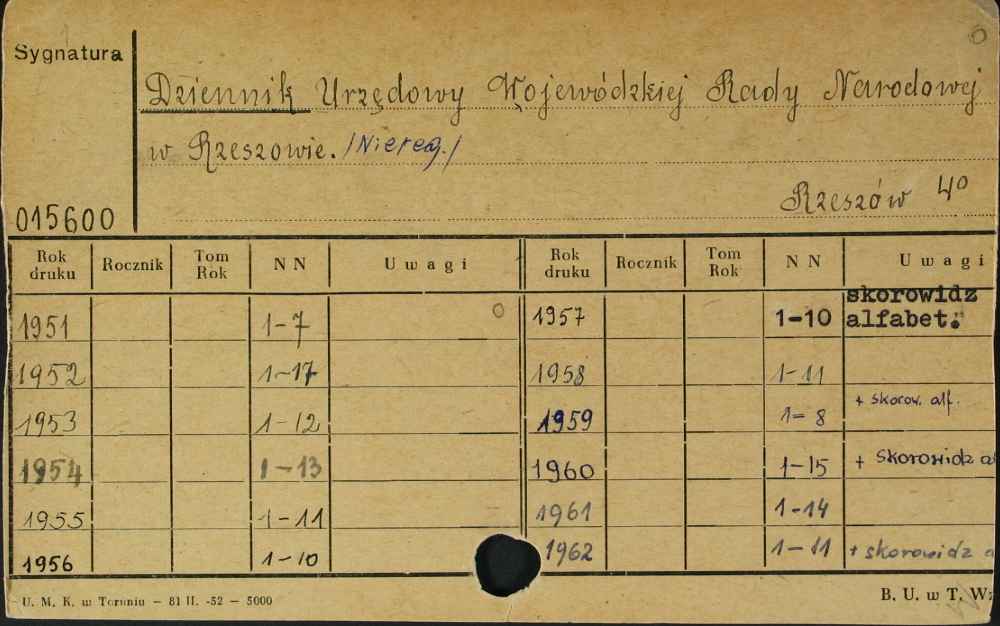 Sygnatura
Dziennik Urzędowy Wojewódzkiej Rady Narodowej
w Rzeszowie. /Niereg./
Rzeszów 4°
015600
Rok druku Rocznik Tom Rok NN Uwagi Rok druku Rocznik Tom Rok NN Uwagi
1951 1-7 1957 1-10 skorowidz alfabet.
1952 1-17 1958 1-11
1953 1-12 1959 1-8 + skorow. alf.
1954 1-13 1960 1-15 + skorowidz a
1955 1-11 1961 1-14
1956 1-10 1962 1-11 + skorowidz a
U. M. K. w Toruniu - 81 II. -52 - 5000
B. U. w T. Wz